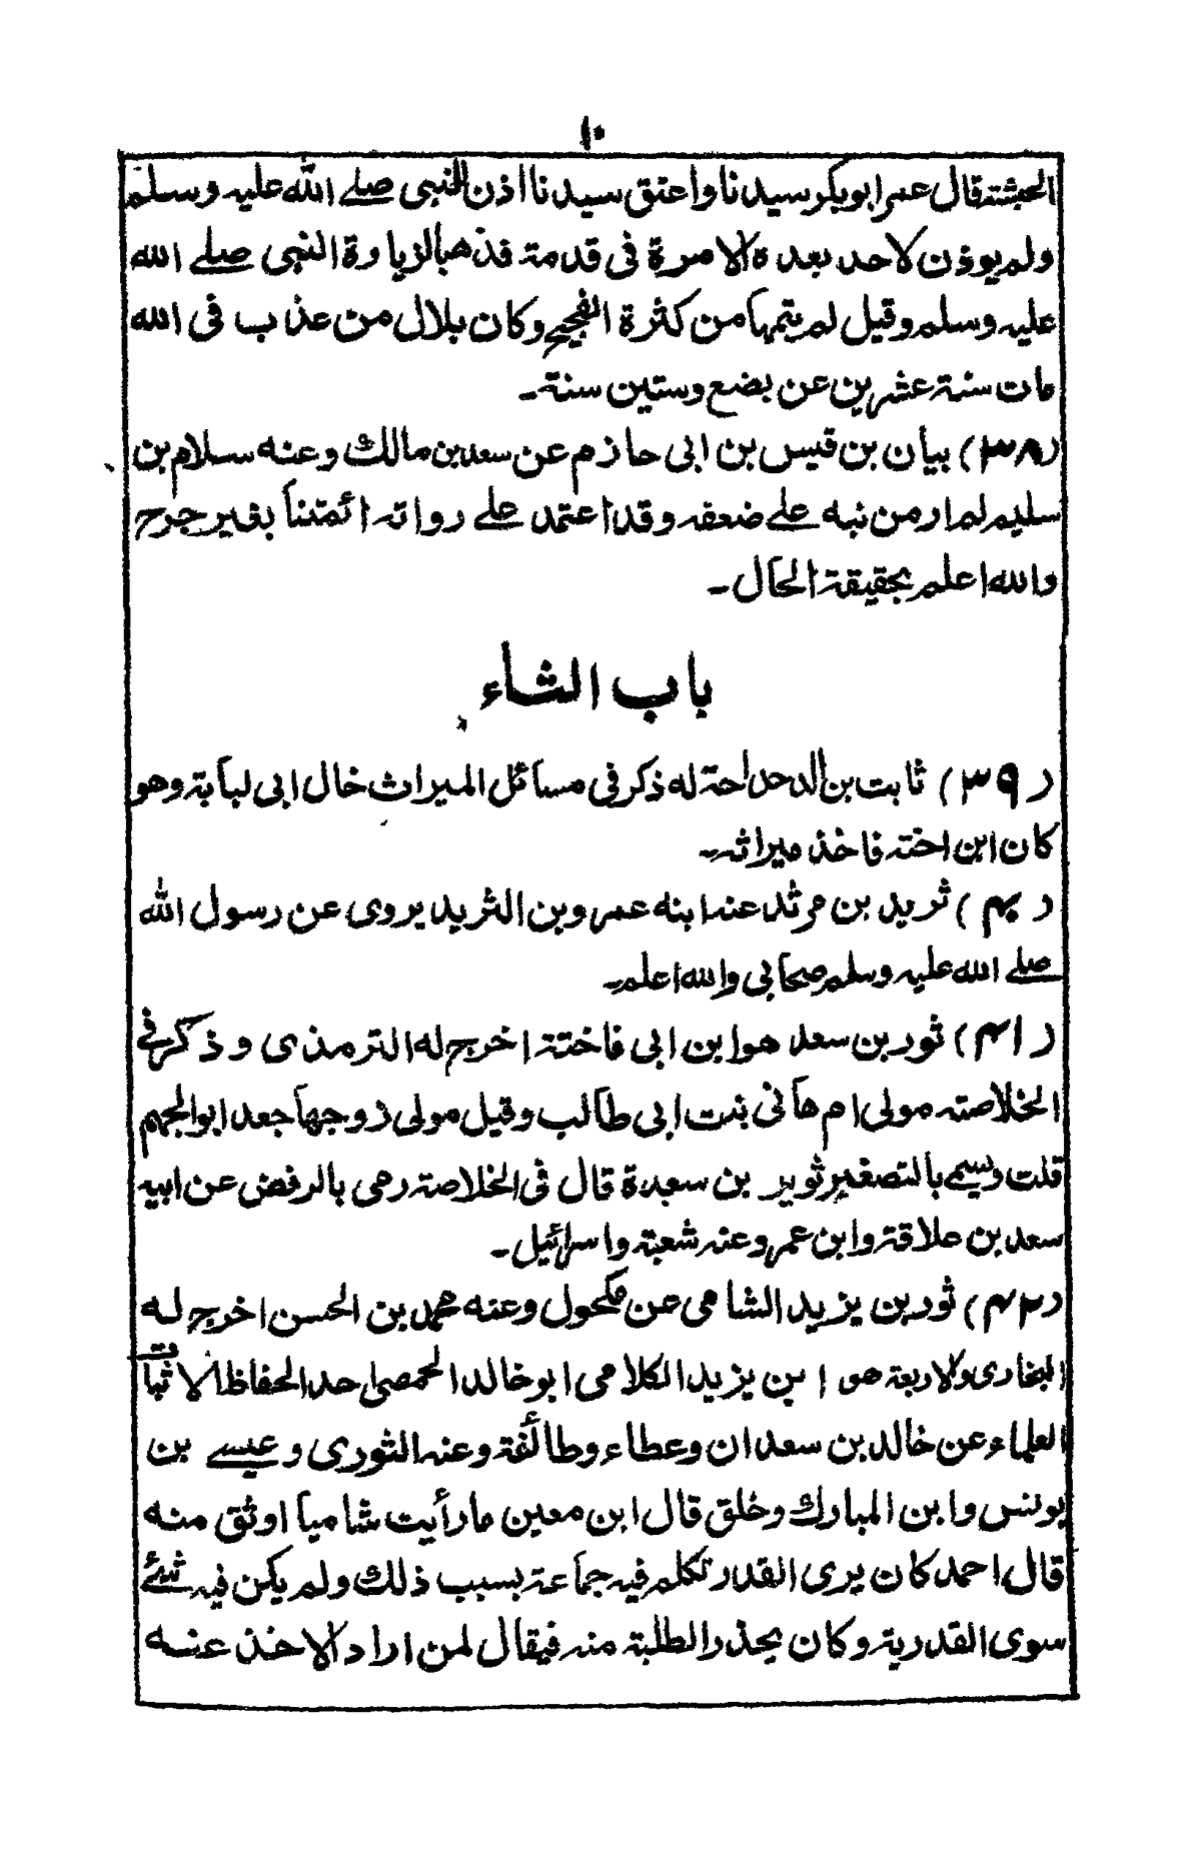 ١٠
الحبشة قال عمر ابوبكر سيدنا واعتق سيدنا اذن للنبى صلے الله عليه وسلم
ولم يوذن لاحد بعده الا مرة فى قدمة قدمها لزيارة النبى صلے الله
عليه وسلم وقيل لم يتمها من كثرة الضجيج وكان بلال من عذب فى الله
مات سنة عشرين عن بضع وستين سنة۔
(٣٨) بيان بن قيس بن ابى حازم عن سعد بن مالك وعنه سلام بن
سليم لم ار من نبه علے ضعفه وقد اعتمد علے رواته ائمتنا بغير جرح
والله اعلم بحقيقة الحال۔
باب الثاء
(٣٩) ثابت بن الدحداحة له ذكر فى مسائل الميراث خال ابى لبابة وهو
كان ابن اخته فاخذ ميراثه۔
(۴۰) ثريد بن مرثد عنه ابنه عمرو بن الثريد يروى عن رسول الله
صلے الله عليه وسلم صحابى والله اعلم۔
(۴۱) ثور بن سعد هو ابن ابى فاختة اخرج له الترمذى وذكر فى
الخلاصة مولى ام هانى بنت ابى طالب وقيل مولى زوجها جعد ابو الجهم
قلت ويسمے بالتصغير ثوير بن سعدة قال فى الخلاصة رمى بالرفض عن ابيه
سعد بن علاقة وابن عمر وعنه شعبة واسرائيل۔
(۴۲) ثور بن يزيد الشامى عن مكحول وعنه محمد بن الحسن اخرج له
البخارى والاربعة هو ابن يزيد الكلامى ابو خالد الحمصى احد الحفاظ الاثبات
العلماء عن خالد بن سعدان وعطاء وطائفة وعنه الثورى وعيسے بن
يونس وابن المبارك وخلق قال ابن معين ما رأيت شاميا اوثق منه
قال احمد كان يرى القدر تكلم فيه جماعة بسبب ذلك ولم يكن فيه شئے
سوى القدرية وكان يحذر الطلبة منه فيقال لمن اراد الاخذ عنه